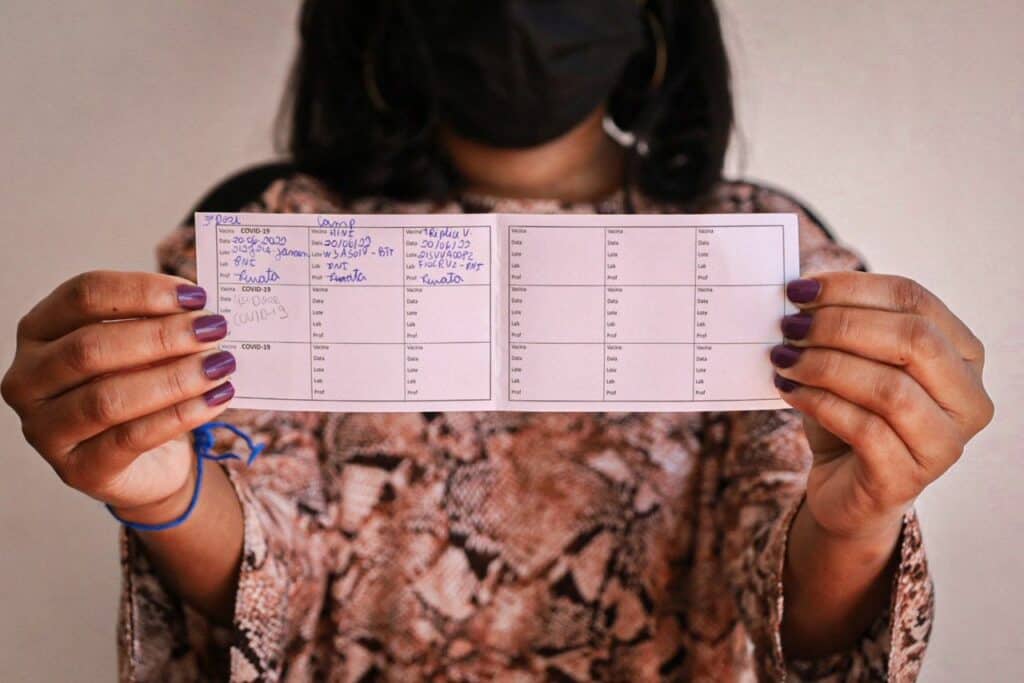 3ª Dose
Vacina COVID-19
Data 20.06.2022
Lote
Lab
Prof Renata
Camp
Vacina H1N1
Data 20/06/22
Lote
Lab
Prof Renata
Vacina Tríplice V.
Data 20/06/22
Lote
Lab
Prof Renata
Vacina
Data
Lote
Lab
Prof
Vacina
Data
Lote
Lab
Prof
Vacina
Data
Lote
Lab
Prof
Vacina COVID-19
Data
Lote COVID-19
Vacina
Data
Lote
Lab
Prof
Vacina
Data
Lote
Lab
Prof
Vacina
Data
Lote
Lab
Prof
Vacina
Data
Lote
Lab
Prof
Vacina
Data
Lote
Lab
Prof
Vacina COVID-19
Vacina
Data
Lote
Lab
Prof
Vacina
Data
Lote
Lab
Prof
Vacina
Data
Lote
Lab
Prof
Vacina
Data
Lote
Lab
Prof
Vacina
Data
Lote
Lab
Prof